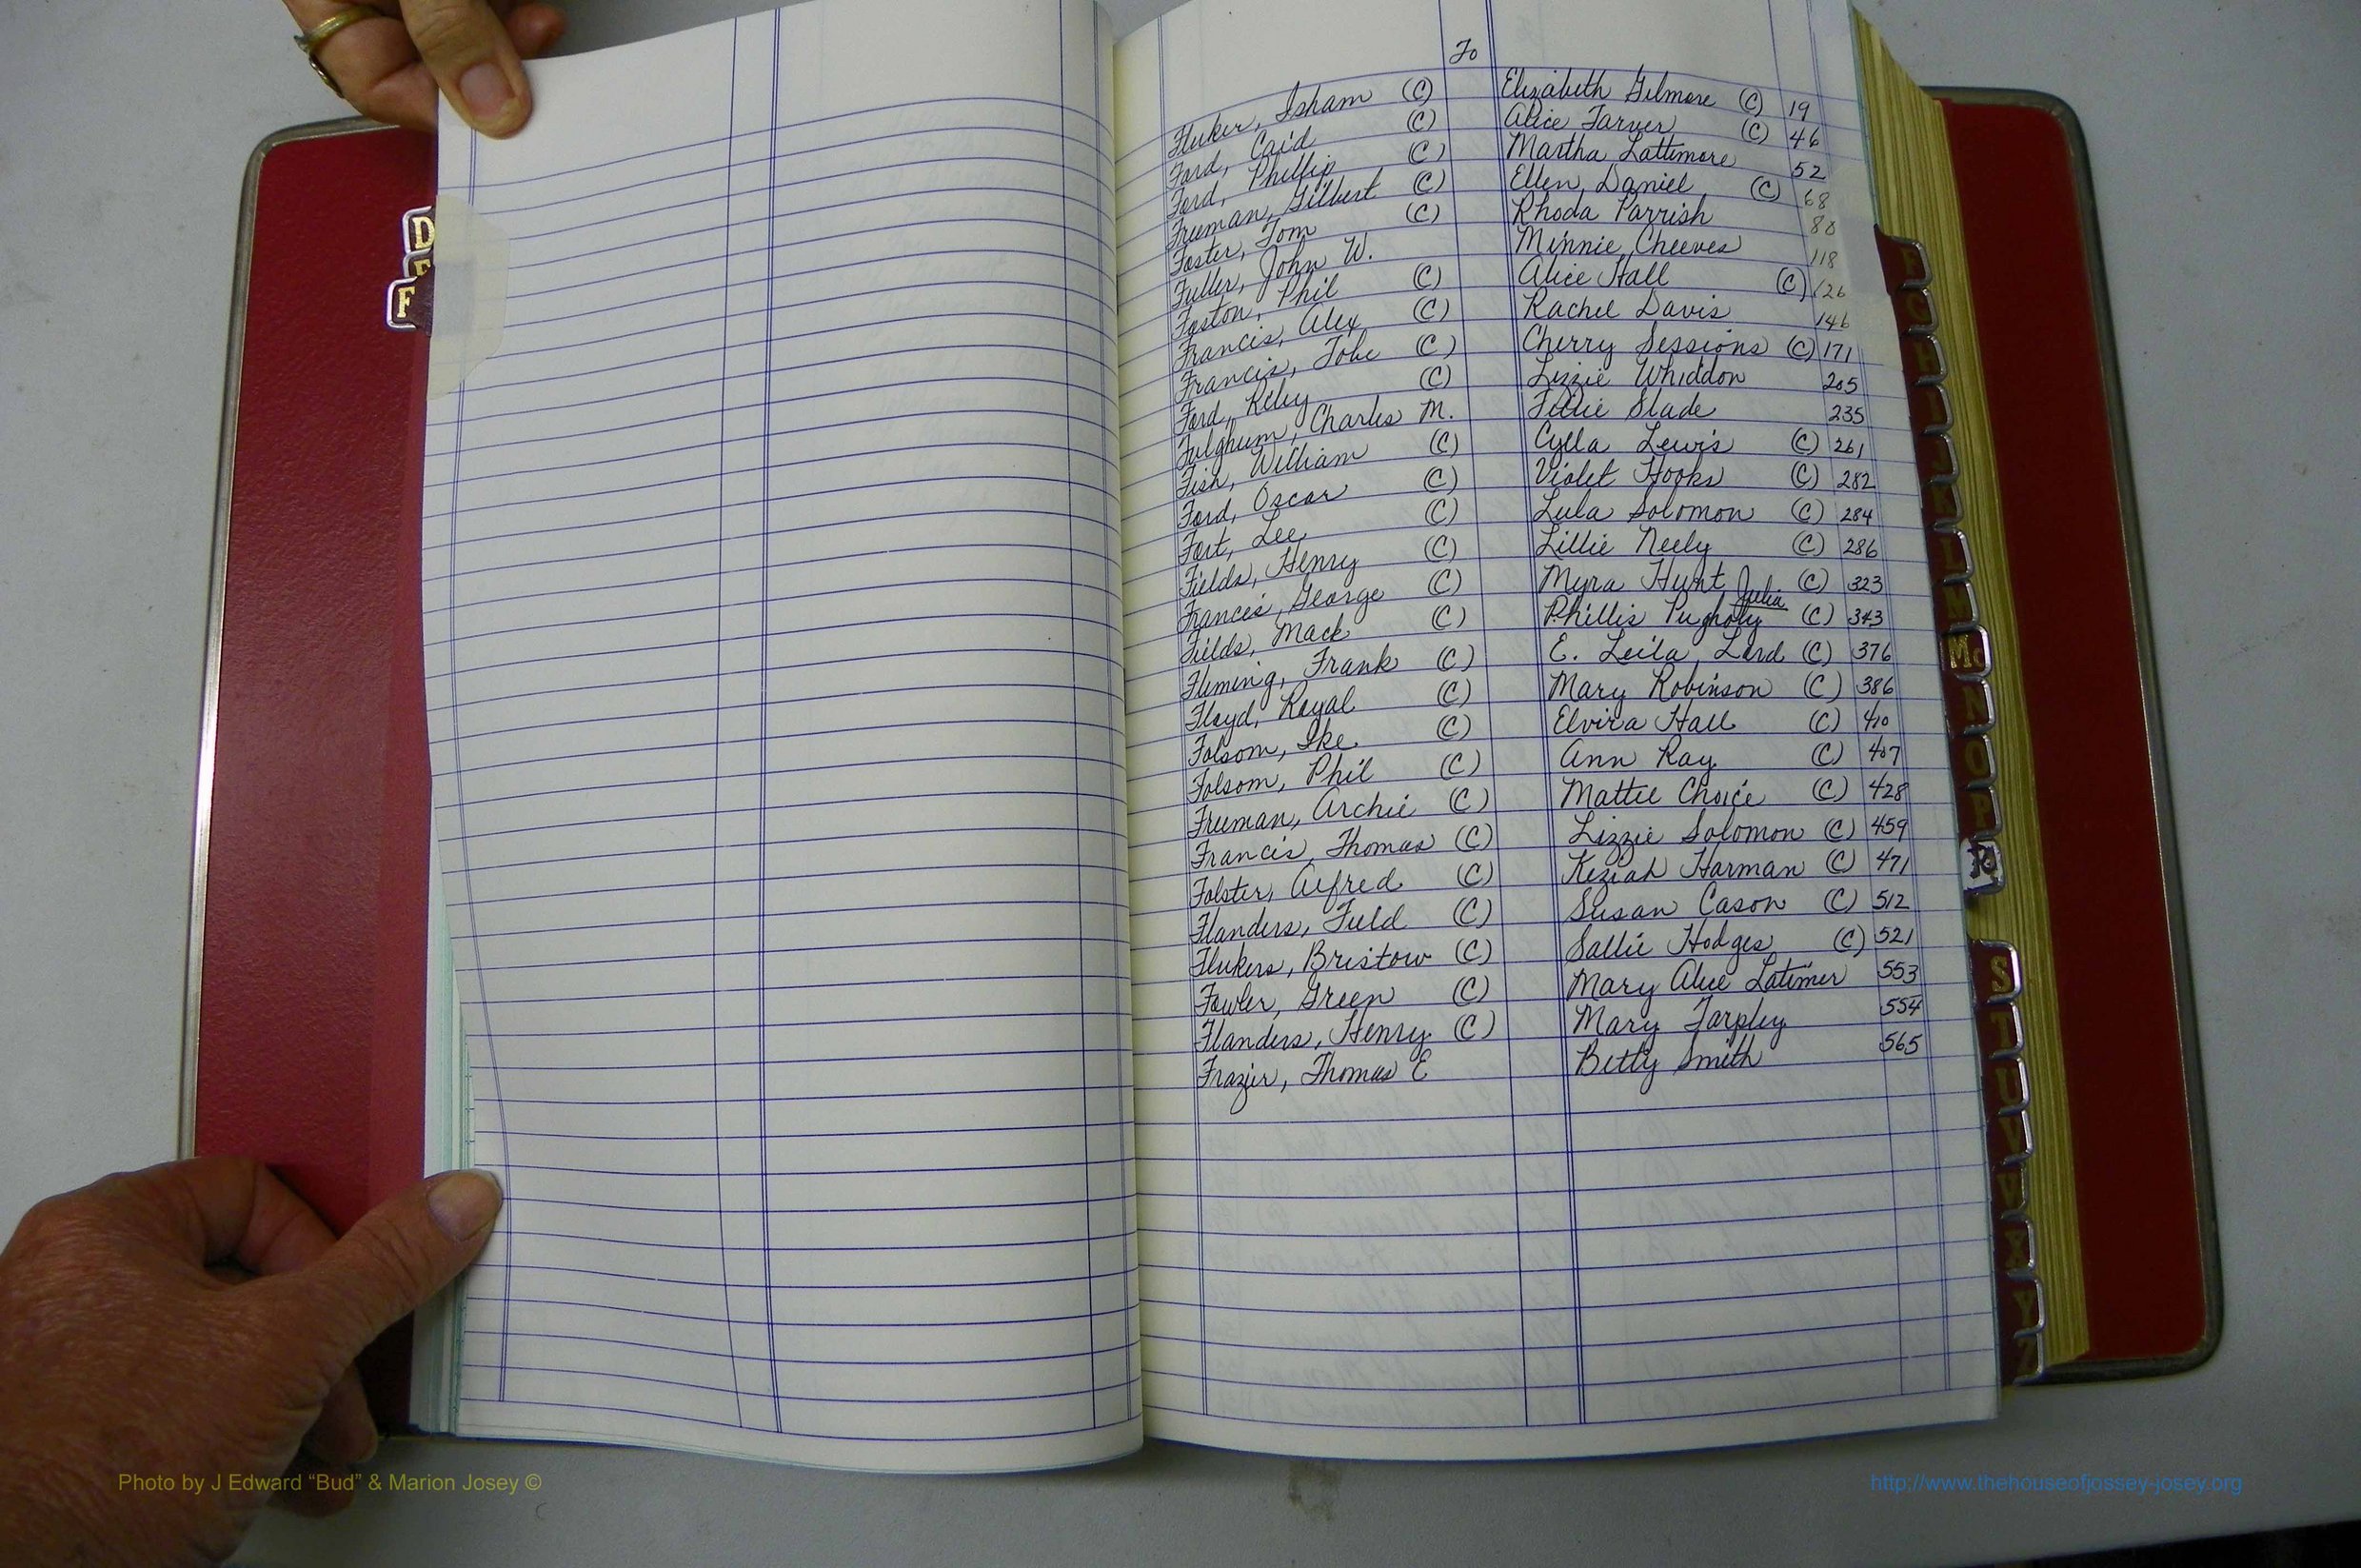 To
Fluker, Isham (C) Elizabeth Gilmore (C) 19
Ford, Caid (C) Alice Tarver (C) 46
Ford, Phillip (C) Martha Lattimore 52
Freeman, Gilbert (C) Ellen Daniel (C) 68
Foster, Tom (C) Rhoda Parrish 80
Fuller, John W. Minnie Cheeves 118
Foston, Phil (C) Alice Hall (C) 126
Francis, Alex (C) Rachel Davis 146
Francis, Tobe (C) Cherry Sessions (C) 171
Ford, Riley (C) Lizzie Whiddon 205
Fulghum, Charles M. Tillie Slade 235
Fish, William (C) Cylla Lewis (C) 261
Ford, Oscar (C) Violet Hooks (C) 282
Fort, Lee (C) Lula Solomon (C) 284
Fields, Henry (C) Lillie Neely (C) 286
Frances, George (C) Myra Hunt (C) 323
Julia
Fields, Mack (C) Phillis (C) 343
Fleming, Frank (C) E. Leila Lord (C) 376
Floyd, Royal (C) Mary Robinson (C) 386
Folsom, Ike (C) Elvira Hall (C) 410
Folsom, Phil (C) Ann Ray (C) 407
Freeman, Archie (C) Mattie Choice (C) 428
Francis, Thomas (C) Lizzie Solomon (C) 459
Folster, Alfred (C) Keziah Harman (C) 471
Flanders, Field (C) Susan Cason (C) 512
Flukers, Bristow (C) Sallie Hodges (C) 521
Fowler, Green (C) Mary Alice Latimer 553
Flanders, Henry (C) Mary Tarpley 554
Frazier, Thomas E Betty Smith 565
D
E
F
F
G
H
I
J
K
L
M
Mc
N
O
P
R
S
T
U
V
W
X
Y
Z
Photo by J Edward “Bud” & Marion Josey ©
http://www.thehouseofjossey-josey.org